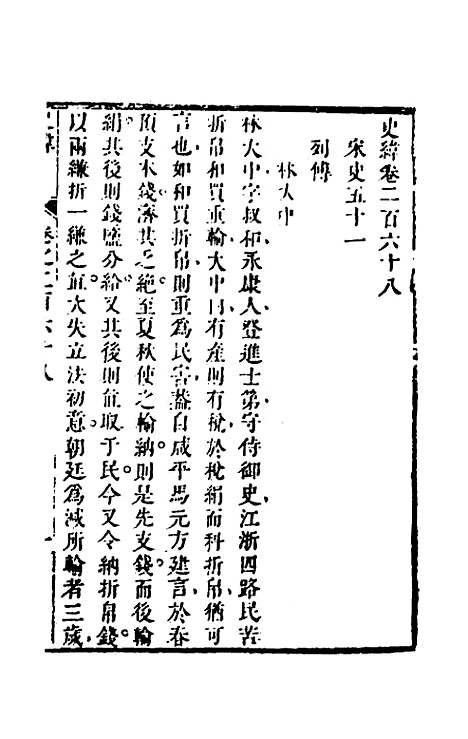 史緯卷二百六十八
宋史五十一
列傳
林大中
林大中字叔和永康人登進士第守侍御史江浙四路民苦
折帛和買重輸大中曰有產則有稅於稅絹而科折帛猶可
言也如和買折帛則重為民害蓋自咸平馬元方建言於春
預支本錢濟其乏絕至夏秋使之輸納則是先支錢而後輸
絹其後則錢鹽分給又其後則直取于民今又令納折帛錢
以兩縑折一縑之直大失立法初意朝廷為減所輸者三歲
史緯 卷之二百六十八 一